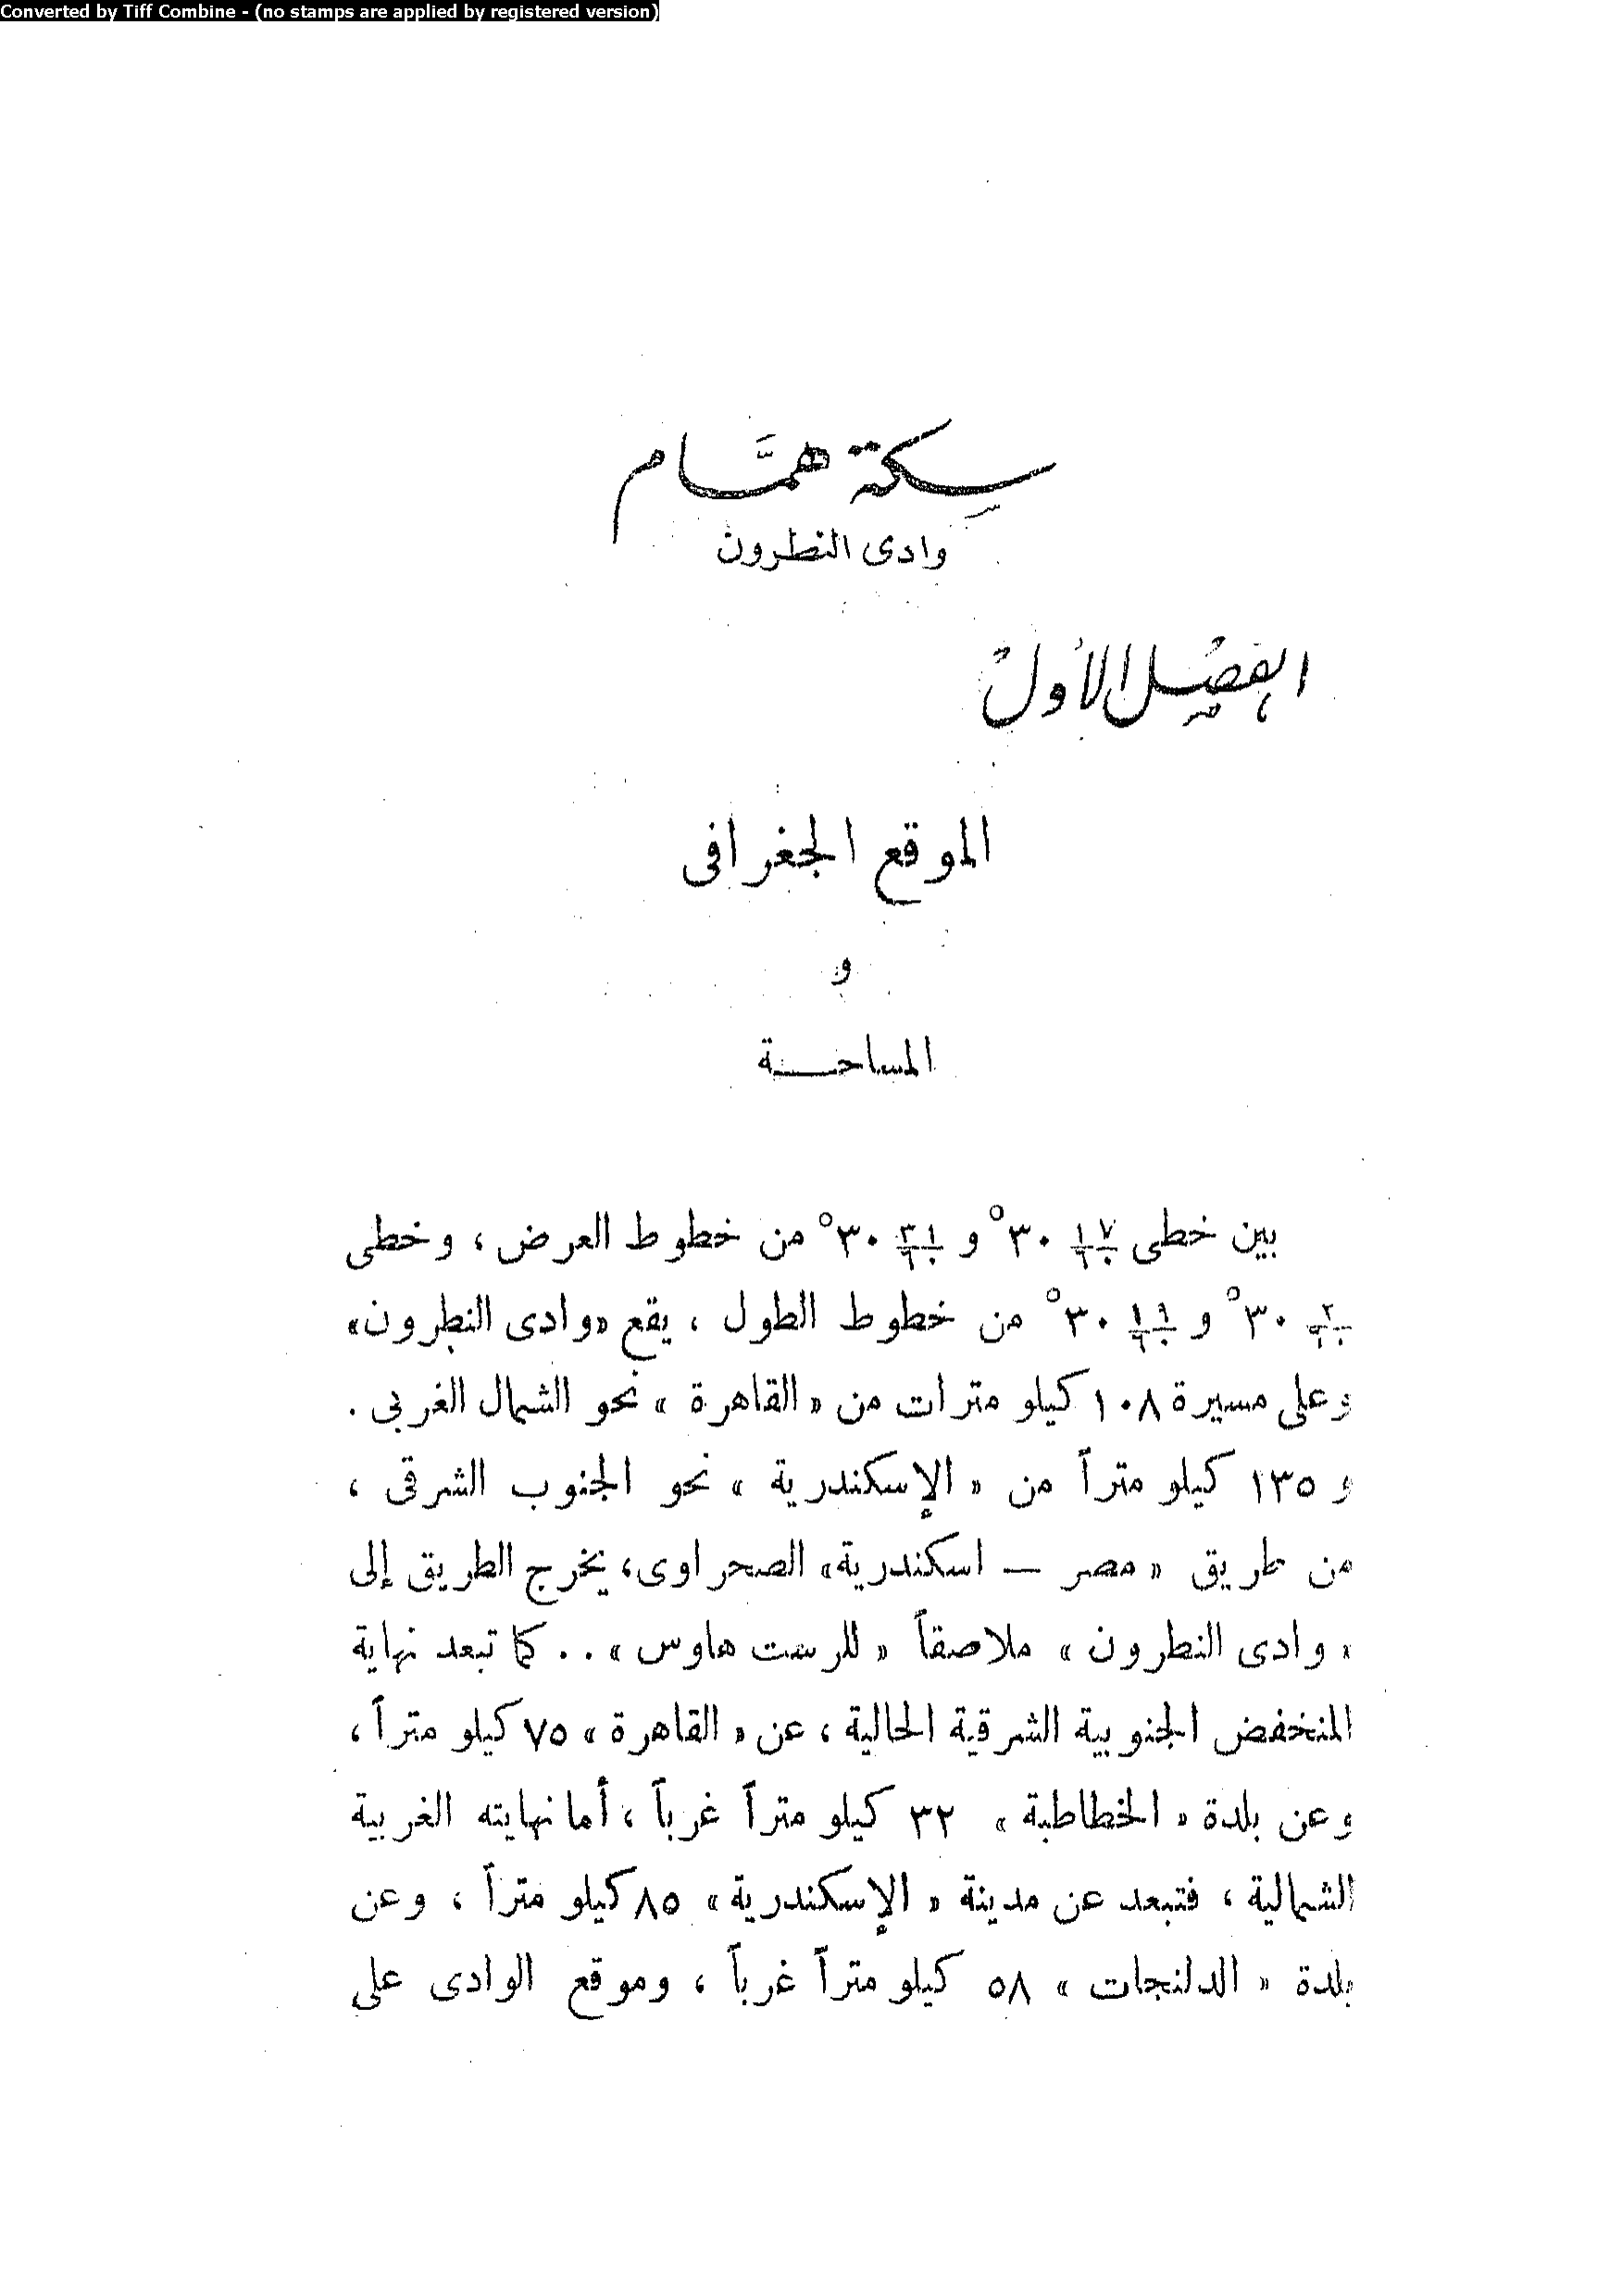 Converted by Tiff Combine - (no stamps are applied by registered version)
سكة همَّام
وادى النطرون
الفصل الأول
الموقع الجغرافى
و
المساحة
بين خطى ٣٠° و ٣٠° من خطوط العرض ، وخطى
٣٠° و ٣٠° من خطوط الطول ، يقع «وادى النطرون»
وعلى مسيرة ١٠٨ كيلو مترات من « القاهرة » نحو الشمال الغربى .
و ١٣٥ كيلو متراً من « الإسكندرية » نحو الجنوب الشرقى ،
من طريق « مصر — اسكندرية» الصحراوى، يخرج الطريق إلى
« وادى النطرون » ملاصقاً « للرست هاوس » . . كما تبعد نهاية
المنخفض الجنوبية الشرقية الحالية ، عن « القاهرة » ٧٥ كيلو متراً ،
وعن بلدة « الخطاطبة » ٣٢ كيلو متراً غرباً ، أما نهايته الغربية
الشمالية ، فتبعد عن مدينة « الإسكندرية » ٨٥ كيلو متراً ، وعن
بلدة « الدلنجات » ٥٨ كيلو متراً غرباً ، وموقع الوادى على